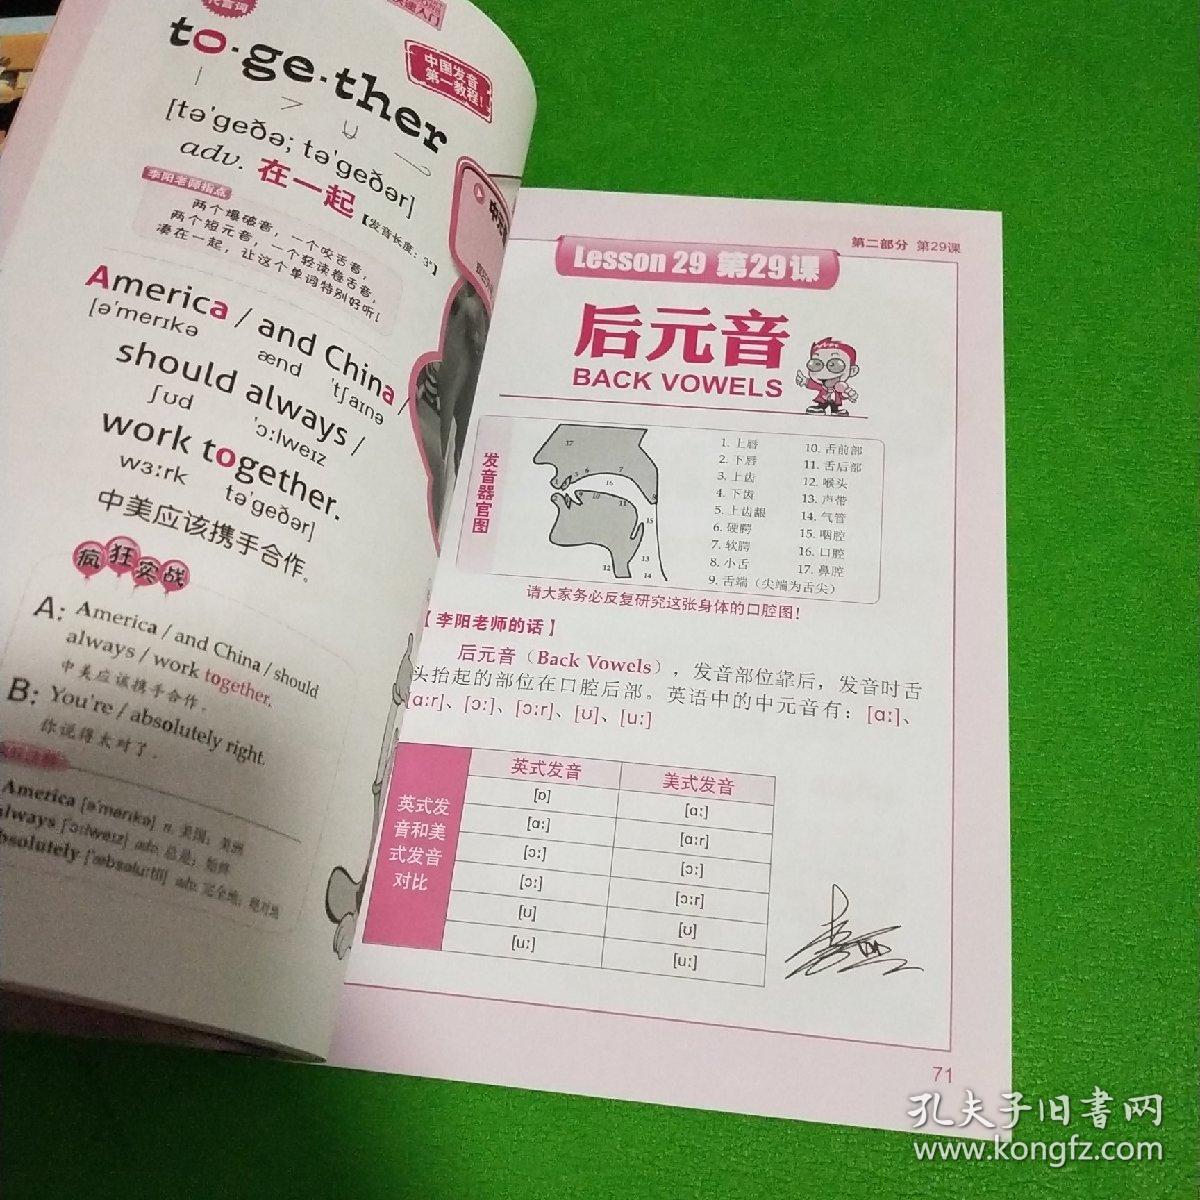 代言词
快速入门
to·ge·ther
中国发音
第一教程!
[tə'geðə; tə'geðər]
adv. 在一起
【发音长度：3"】
李阳老师指点
两个爆破音，一个咬舌音，
两个短元音，一个轻读卷舌音，
凑在一起，让这个单词特别好听!
America / and China /
[ə'merɪkə ænd 'tʃaɪnə
should always /
ʃʊd 'ɔːlweɪz
work together.
wɜːrk tə'geðər]
中美应该携手合作。
疯狂实战
A: America / and China / should
always / work together.
中美应该携手合作。
B: You're / absolutely right.
你说得太对了。
America [ə'merɪkə] n. 美国；美洲
always ['ɔːlweɪz] adv. 总是；始终
absolutely ['æbsəluːtli] adv. 完全地；绝对地
第二部分 第29课
Lesson 29 第29课
后元音
BACK VOWELS
发音器官图
1. 上唇
2. 下唇
3. 上齿
4. 下齿
5. 上齿龈
6. 硬腭
7. 软腭
8. 小舌
9. 舌端（尖端为舌尖）
10. 舌前部
11. 舌后部
12. 喉头
13. 声带
14. 气管
15. 咽腔
16. 口腔
17. 鼻腔
请大家务必反复研究这张身体的口腔图!
【李阳老师的话】
后元音（Back Vowels），发音部位靠后，发音时舌
头抬起的部位在口腔后部。英语中的中元音有：[ɑː]、
[ɑːr]、[ɔː]、[ɔːr]、[ʊ]、[uː]
英式发音和美式发音对比
英式发音 美式发音
[ɒ] [ɑː]
[ɑː] [ɑːr]
[ɔː] [ɔː]
[ɔː] [ɔːr]
[ʊ] [ʊ]
[uː] [uː]
71
孔夫子旧书网
www.kongfz.com